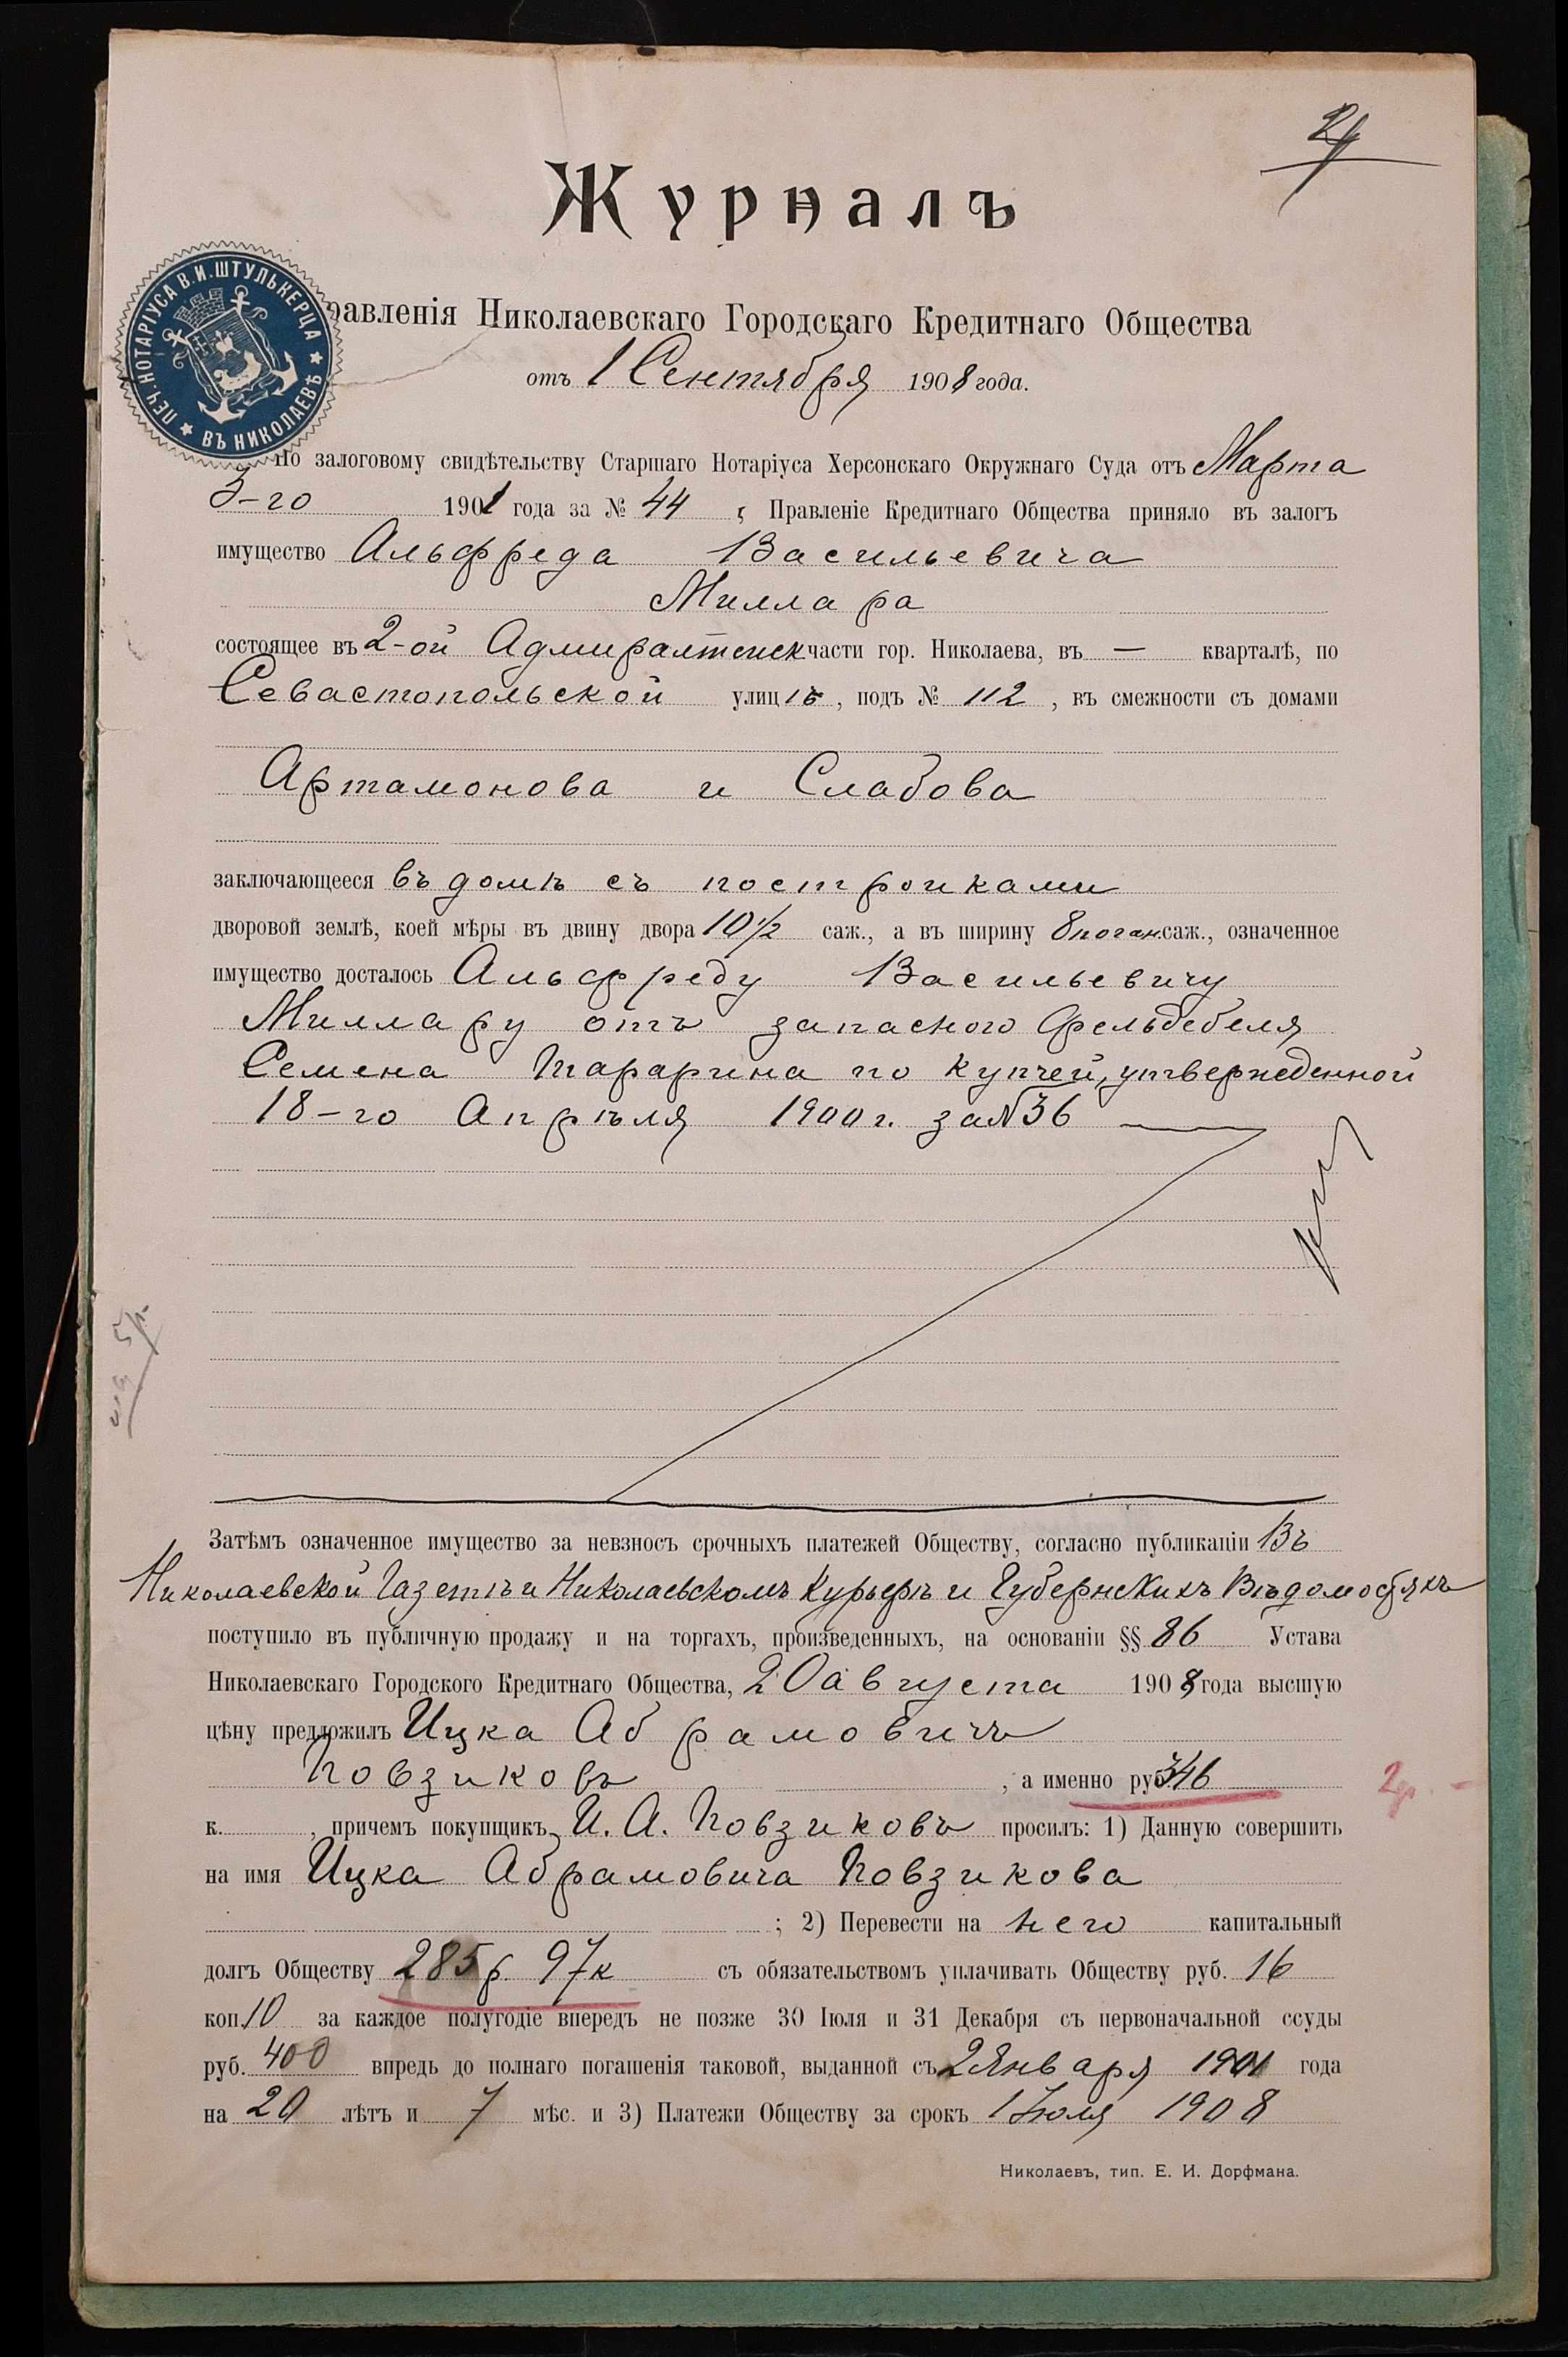 2
Журналъ
равленія Николаевскаго Городскаго Кредитнаго Общества
ПЕЧ. НОТАРІУСА В. И. ШТУЛЬКЕРЦА ★ ВЪ НИКОЛАЕВѢ ★
отъ 1 Сентября 1908 года.
По залоговому свидѣтельству Старшаго Нотаріуса Херсонскаго Окружнаго Суда отъ Марта
5-го 1901 года за № 44, Правленіе Кредитнаго Общества приняло въ залогъ
имущество Альфреда Васильевича
Миллара
состоящее въ 2-ой Адмиралтейск части гор. Николаева, въ — кварталѣ, по
Севастопольской улицѣ, подъ № 112, въ смежности съ домами
Артамонова и Слабова
заключающееся въ домѣ съ постройками
дворовой землѣ, коей мѣры въ двину двора 10 1/2 саж., а въ ширину 8 погон. саж., означенное
имущество досталось Альфреду Васильевичу
Миллару отъ запасного Фельдфебеля
Семена Тарарина по купчей, утвержденной
18-го Апрѣля 1900 г. за № 36
Затѣмъ означенное имущество за невзносъ срочныхъ платежей Обществу, согласно публикаціи Въ
Николаевской Газетѣ и Николаевскомъ Курьерѣ и Губернскихъ Вѣдомостяхъ
поступило въ публичную продажу и на торгахъ, произведенныхъ, на основаніи §§ 86 Устава
Николаевскаго Городского Кредитнаго Общества, 20 августа 1908 года высшую
цѣну предложилъ Ицка Абрамовичъ
Повзиковъ, а именно руб. 346
2р. -
к. , причемъ покупщикъ И. А. Повзиковъ просилъ: 1) Данную совершить
на имя Ицка Абрамовича Повзикова
; 2) Перевести на него капитальный
долгъ Обществу 285 р. 97 к съ обязательствомъ уплачивать Обществу руб. 16
коп. 10 за каждое полугодіе впередъ не позже 30 Іюля и 31 Декабря съ первоначальной ссуды
руб. 400 впредь до полнаго погашенія таковой, выданной съ 2 Января 1901 года
на 20 лѣтъ и 7 мѣс. и 3) Платежи Обществу за срокъ 1 Іюля 1908
Николаевъ, тип. Е. И. Дорфмана.